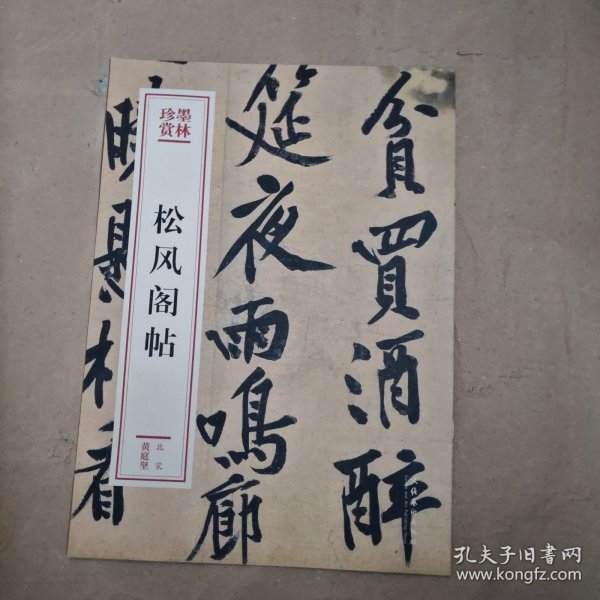 墨林
珍赏
松风阁帖
北宋
黄庭坚
貧買酒醉
筵夜雨鳴廊
曉懸相看
孔夫子旧书网
www.kongfz.com